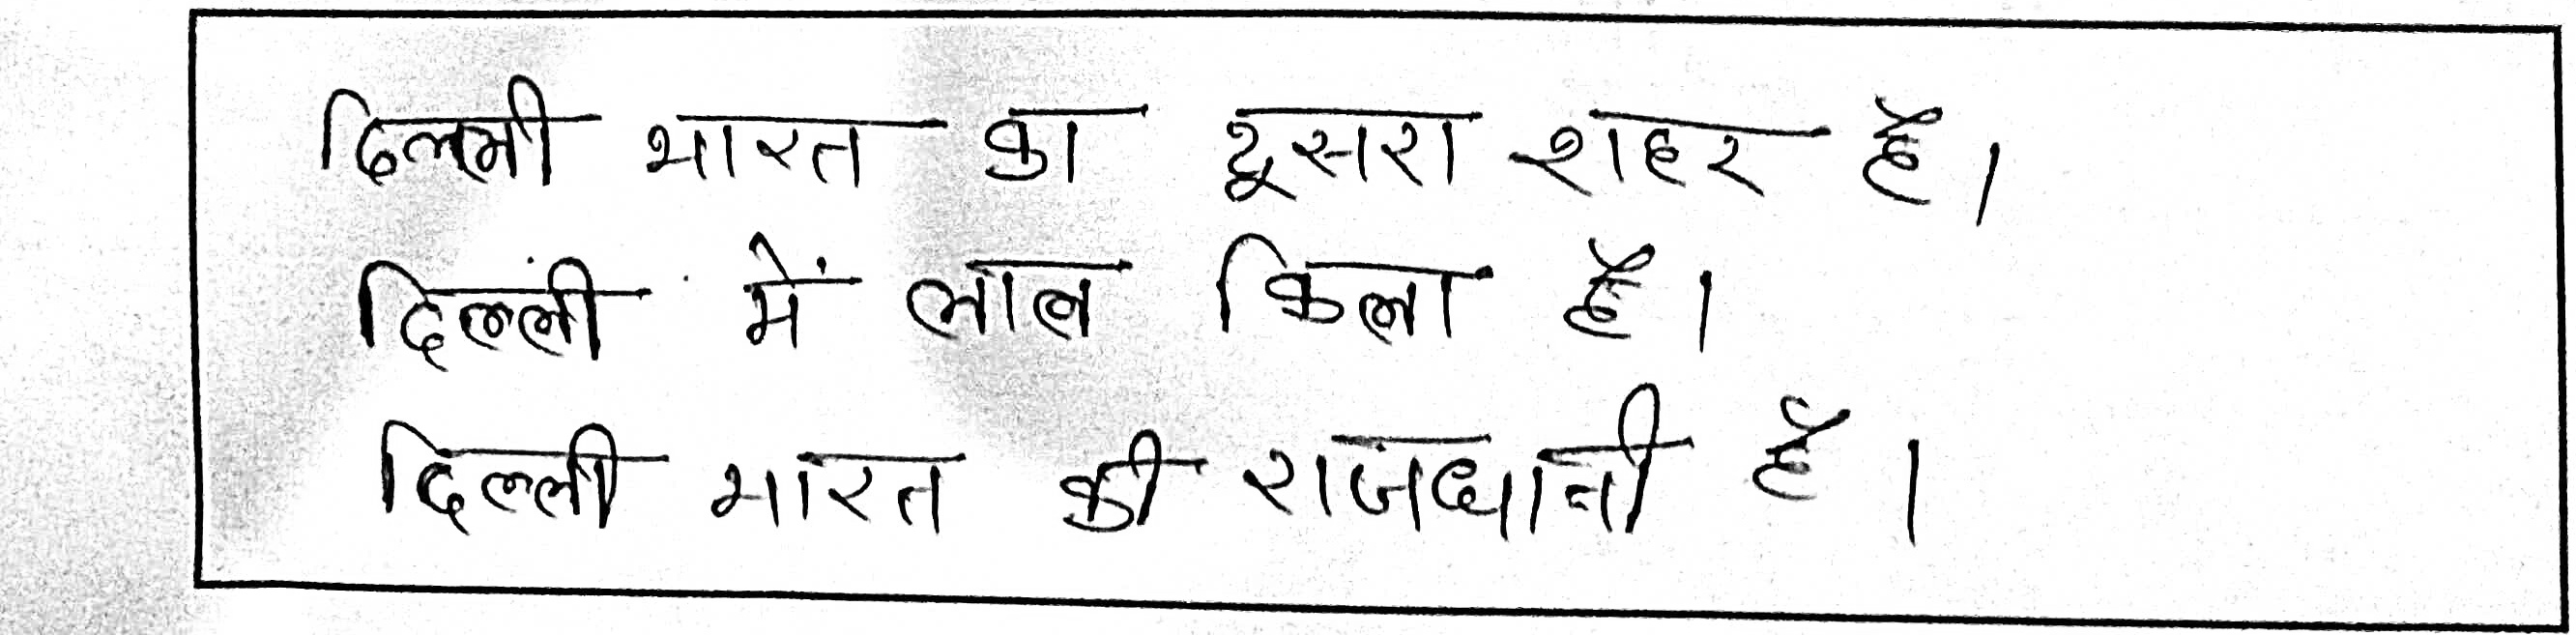 दिल्ली भारत का दूसरा शहर है।
दिल्ली में लाल किला है।
दिल्ली भारत की राजधानी है।